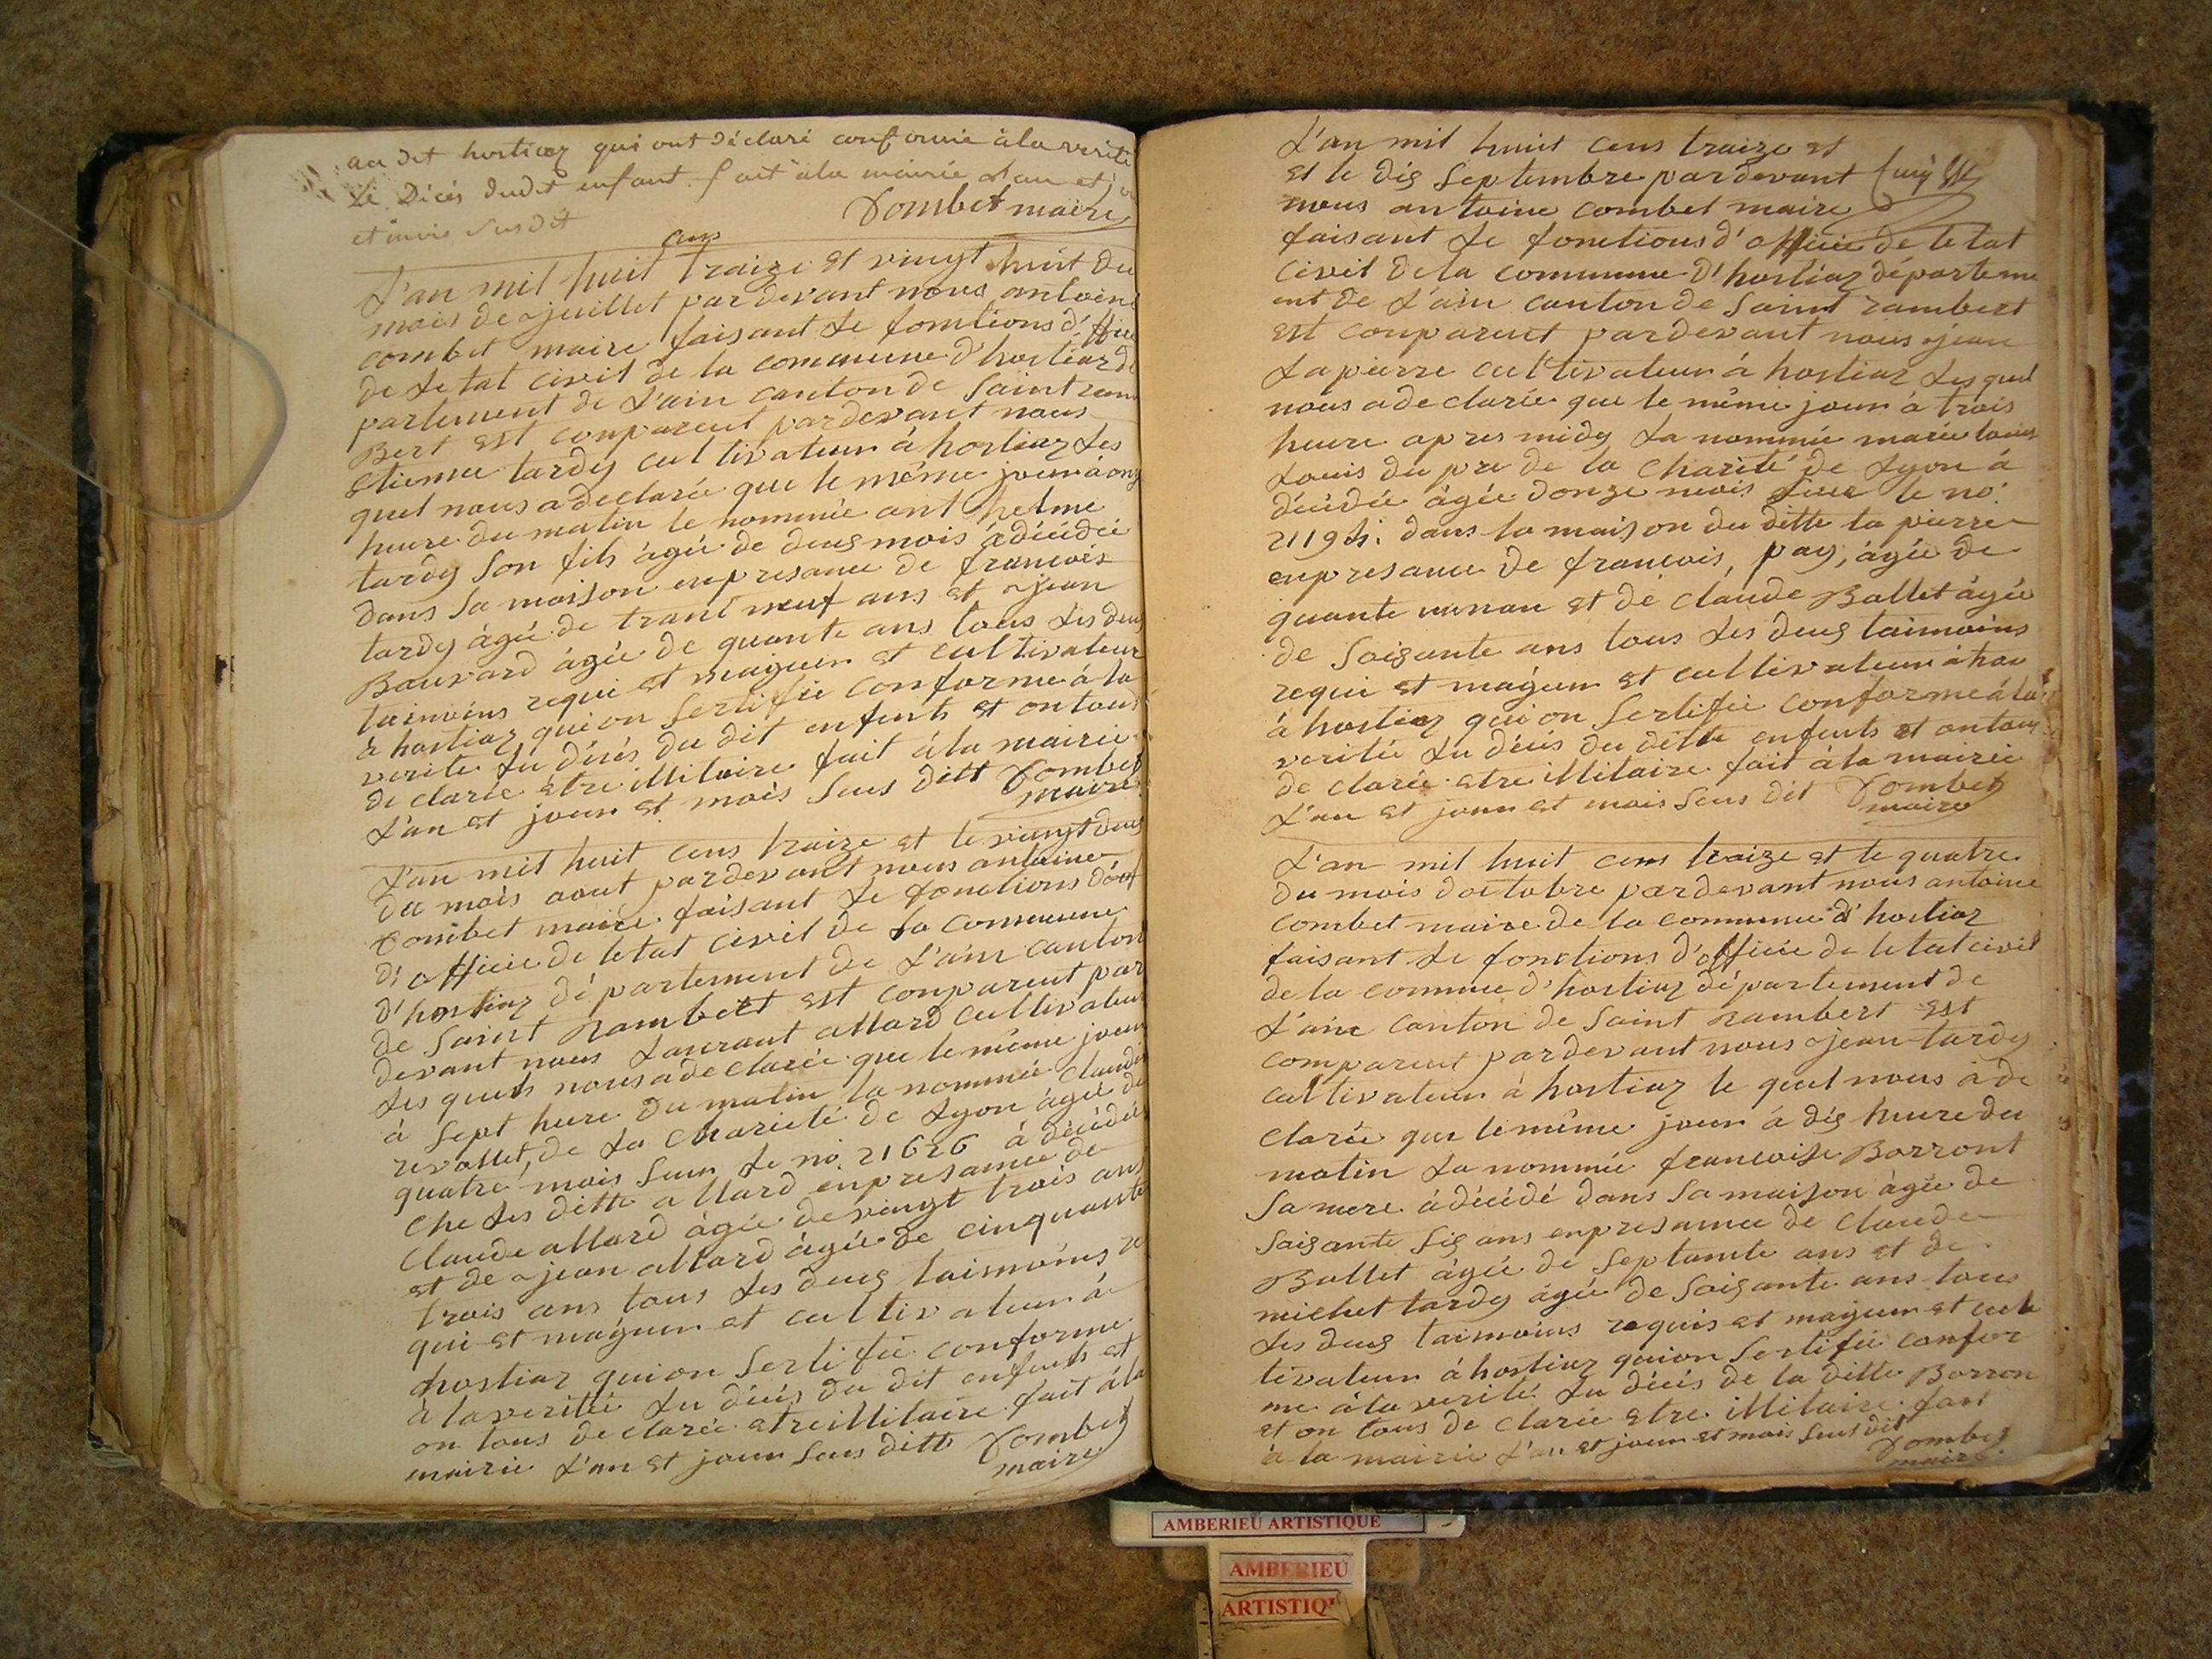 au dit hostiaz qui ont déclaré conforme à la verité
Le Décés dudit enfant. fait à la mairie l'an et
et susdit
Combet maire
cens
L'an mil huit traize et vingt huit du
mois de juillet pardevant nous antoine
combet maire faisant le fonctions d'
de letat civil de la commune d'hostiaz dé
partement de L'ain canton de Saint ram
Bert est conpareut pardevant nous
Etienne tardy cultivateur à hostiaz les
quel nous a declarée que le même jour à onz
heure du matin le nommée anthelme
tardy son fils agée de deus mois à décédée
dans sa maison enpresance de francois
tardy agée de trant neuf ans et jean
Bauvard agée de quante ans tous les deus
taimoins requi et majeur et cultivateur
à hostiaz quion sertifiée conforme à la
verite du décés du dit enfents et on tous
de clarée etre illitaire fait à la mairie
L'an et jour et mois sous ditt Combet
maire
L'an mil huit cens traize et le vingt deus
du mois aout pardevant nous antoine
Combet maire faisant le fonctions
d'officie de letat civil de la commune
d'hostiaz département de L'ain canton
de Saint Rambert est conparent par
devant nous Laurant allard cultivateur
les quels nous a declarée que le même jour
à sept heure du matin la nommée claudi
revollet, de la charieté de Lyon agée de
quatre mois sur le no. 21626 à décédée
che les ditte allard enpresance de
Claude allard agée de vingt trois ans
et de jean allard agée de cinquante
trois ans tous les deus taimoins re
qui et majeur et cultivateur à
hostiaz quion sertifiée conforme
à la veritée du décés du dit enfents et
on tous declarée etre illitaire fait à la
mairie L'an et jour sous ditt Combet
maire
L'an mil huit cens traize et
et le dis septembre pardevant
nous antoine combet maire
faisant le fonctions d'officie de letat
civil de la commune d'hostiaz départeme
ent de L'ain canton de Saint rambert
est conpareut pardevant nous jean
Lapierre cultivateur à hostiaz les quel
nous a declarée que le même jour à trois
heure apres midy la nommée marie louis
Louis du pre de la charité de Lyon à
décédée agée donze mois sur le no.
dans la maison du ditte la pierre
enpresance de francois, pay, agée de
quante unnan et de claude Ballet agée
de soisante ans tous les deus taimoins
requi et majeur et cultivateur à hau
à hostiaz quion sertifiée conforme à la
veritée du décés du ditte enfents et on tous
de clarée etre illitaire fait à la mairie
L'an et jour et mois sous dit Combet
maire
L'an mil huit cens traize et le quatre
du mois doctobre pardevant nous antoine
combet maire de la commune d'hostiaz
faisant le fonctions d'officie de letat civil
de la commue d'hostiaz département de
L'ain canton de Saint Rambert est
compareut pardevant nous jean tardy
cultivateur à hostiaz le quel nous à de
clarée que le même jour à dis heure du
matin la nommée francoise Borront
sa mere à décédé dans sa maison agée de
saisante sis ans enpresance de claude
Ballet agée de septante ans et de
michel tardy agée de soisante ans tous
les deus taimoins requis et majeur et cul
tivateur à hostiaz quion sertifiée confor
me à la verité du décés de la ditte Borron
et on tous de clarée etre illitaire fait
à la mairie L'an et jour et mois sous dit
Combet
maire
AMBERIEU ARTISTIQUE
AMBERIEU
ARTISTIQ